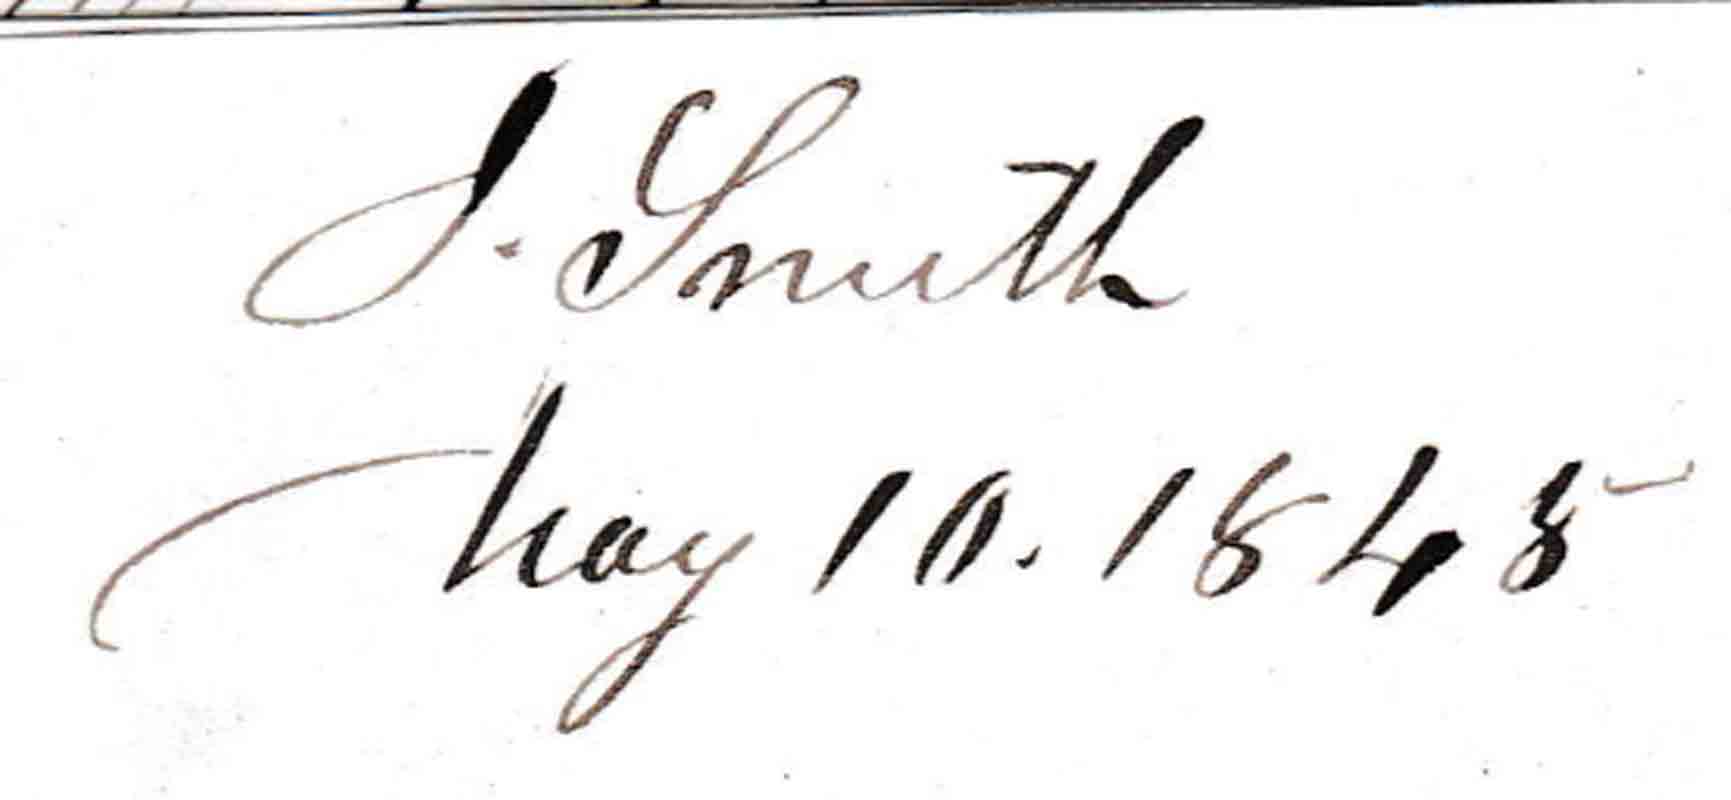 J. Smith
May 10. 1845